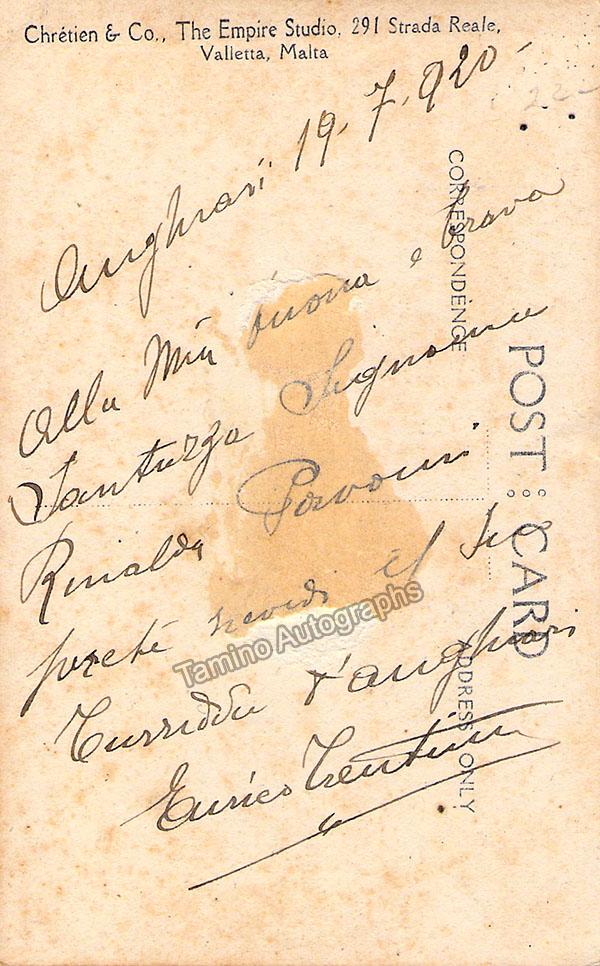 Chrétien & Co., The Empire Studio, 291 Strada Reale,
Valletta, Malta
Anghiari 19.7.920
Alla Mia buona e brava
Santuzza Signorina
Rinalda Pavoni
il suo
Turiddu d'Anghiari
Enrico Trentini
CORRESPONDENCE
POST CARD
ADDRESS ONLY
Tamino Autographs